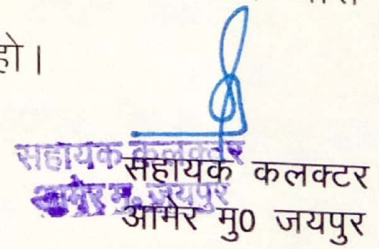 हो।
सहायक कलक्टर
आमेर मु. जयपुर
सहायक कलक्टर
आमेर मु0 जयपुर